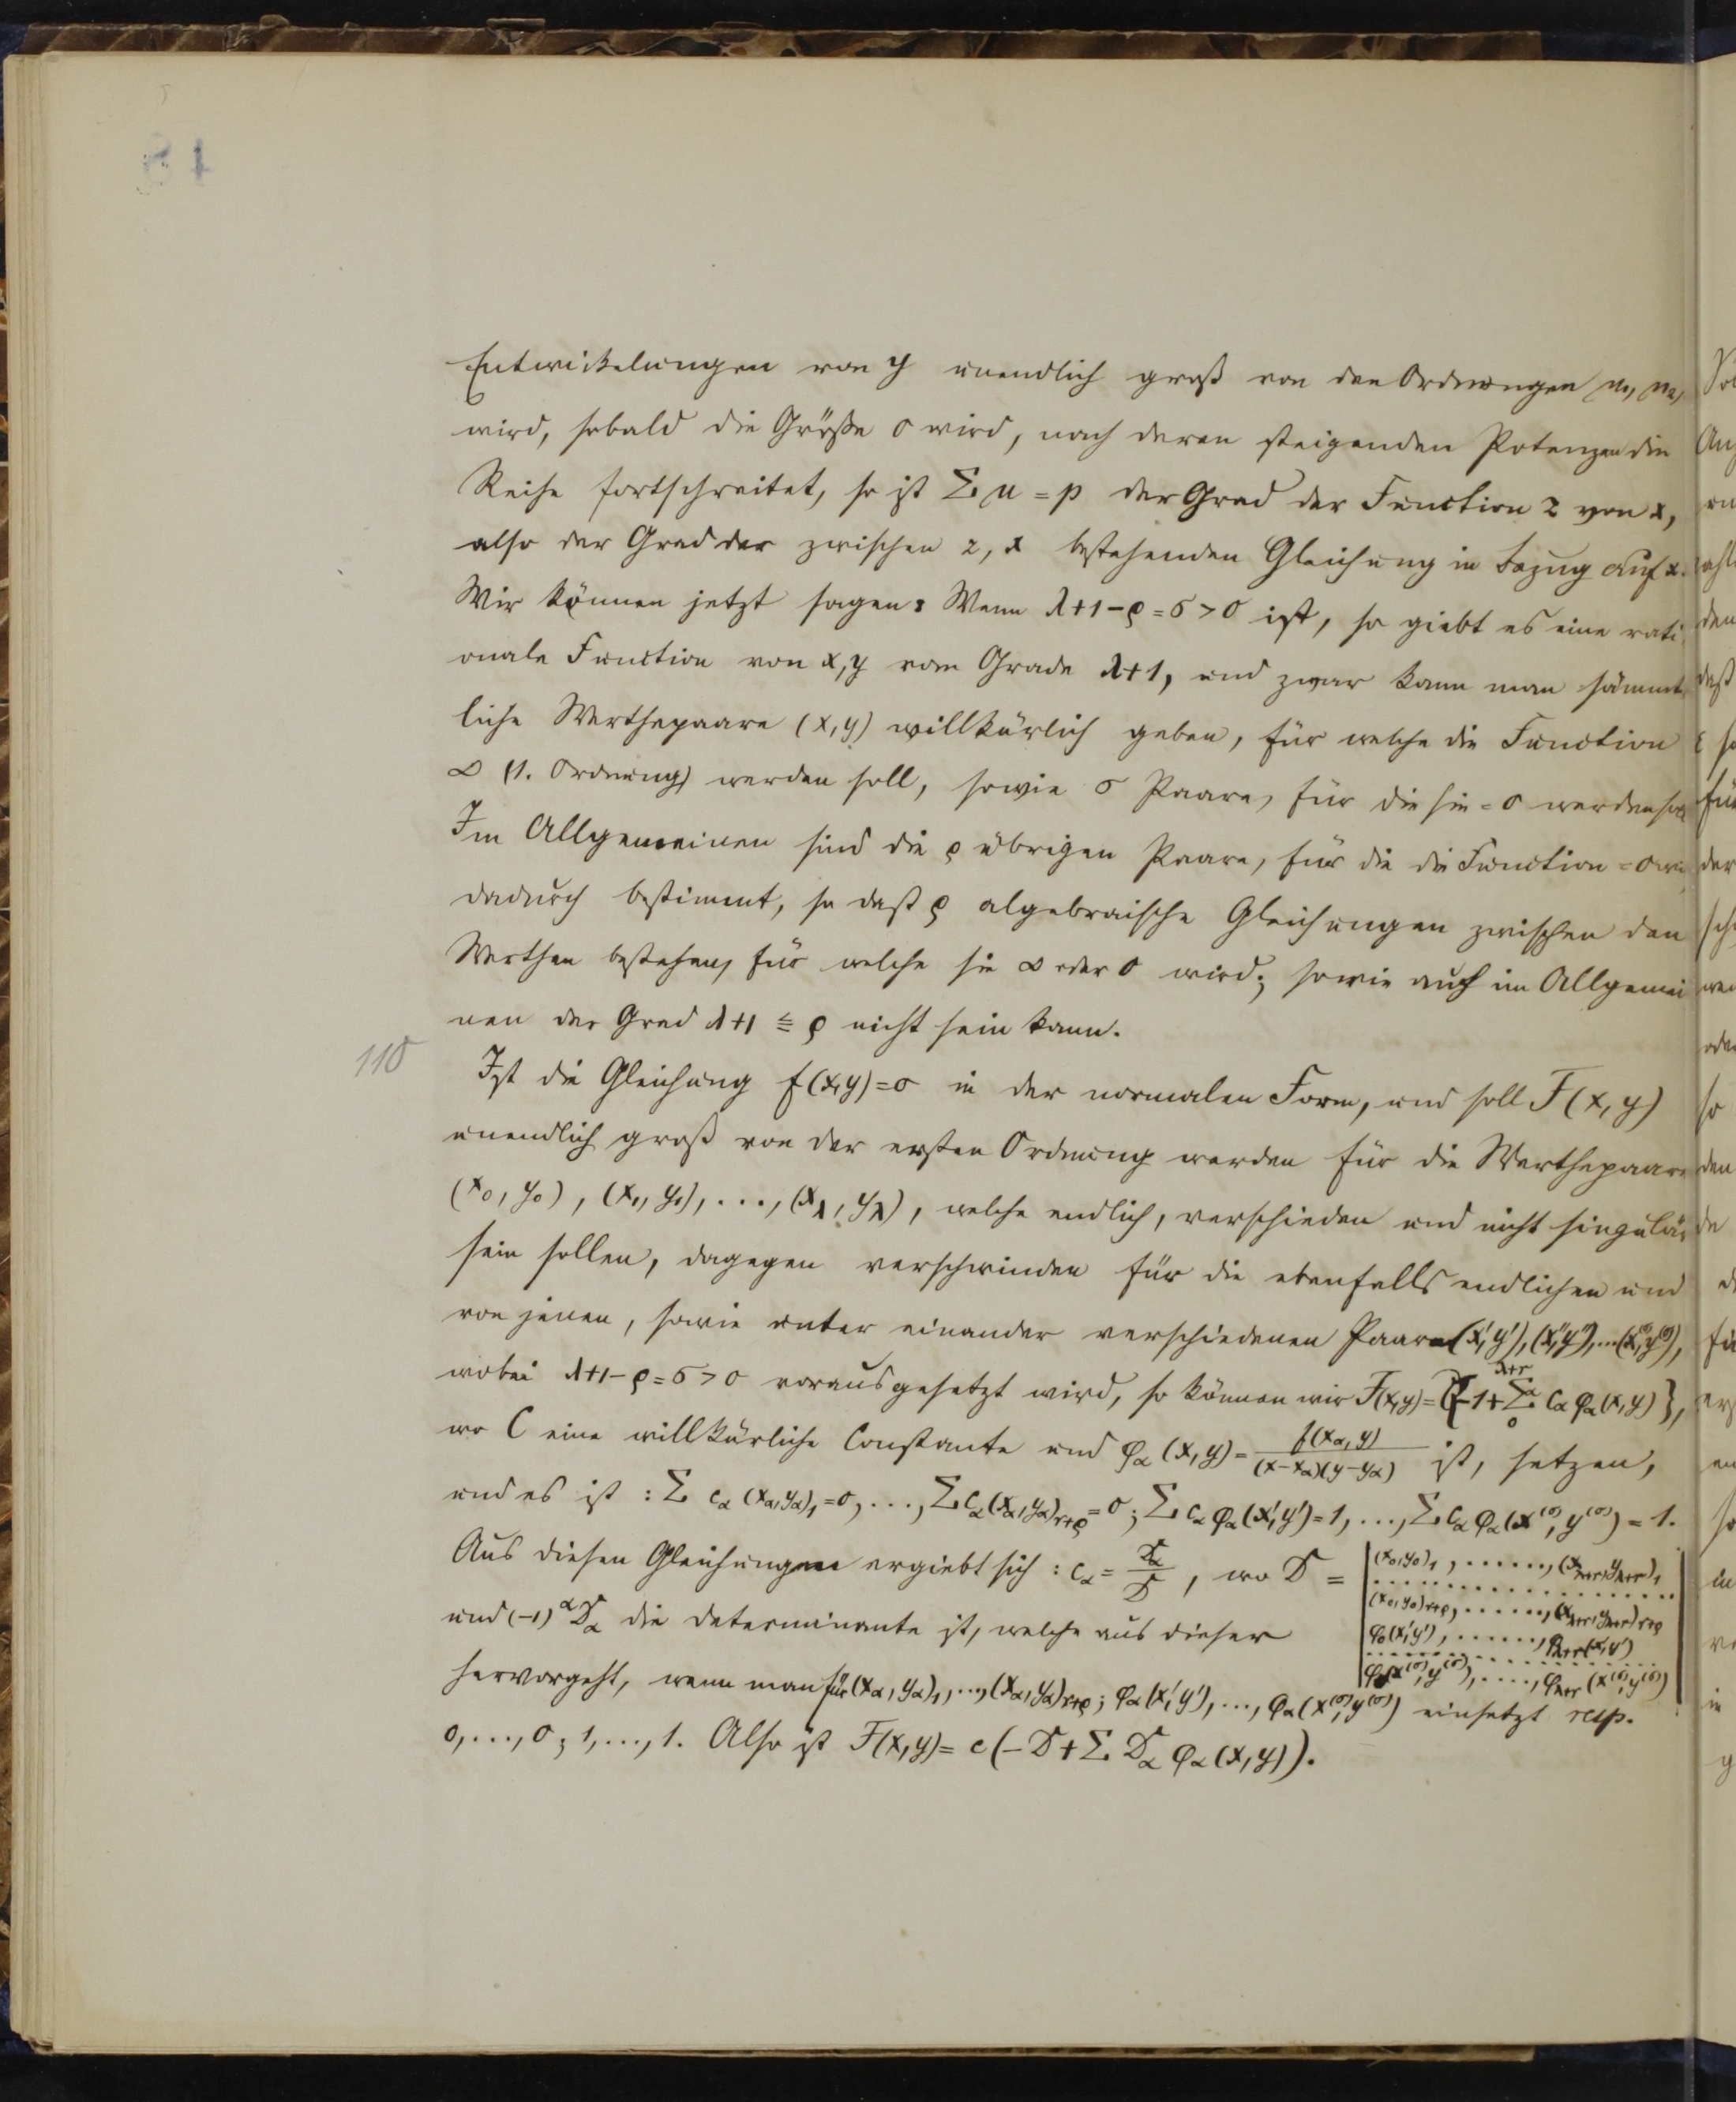 Entwickelungen von y unendlich groß von den Ordnungen μ₁, μ₂,
wird, sobald die Größe 0 wird, nach deren steigenden Potenzen die
Reihe fortschreitet, so ist Σμ = p der Grad der Function z von x,
also der Grad der zwischen z, x bestehenden Gleichung in Bezug auf x.
Wir können jetzt sagen: Wenn λ+1-ρ=σ>0 ist, so giebt es eine rati
onale Function von x, y vom Grade λ+1, und zwar kann man sämmt
liche Werthepaare (x, y) willkürlich geben, für welche die Function
∞ (1. Ordnung) werden soll, sowie σ Paare, für die sie = 0 werden soll
Im Allgemeinen sind die ρ übrigen Paare, für die die Function = 0
dadurch bestimmt, so daß ρ algebraische Gleichungen zwischen den
Werthen bestehen, für welche sie ∞ oder 0 wird; sowie auch im Allgemei
nen der Grad λ+1 ≦ ρ nicht sein kann.
110
Ist die Gleichung f(x,y)=0 in der normalen Form, und soll F(x, y)
unendlich groß von der ersten Ordnung werden für die Werthepaare
(x₀, y₀), (x₁, y₁), ..., (x_λ, y_λ), welche endlich, verschieden und nicht singulär
sein sollen, dagegen verschwinden für die ebenfalls endlichen und
von jenen, sowie unter einander verschiedenen Paare (x', y'), (x'', y''), ... (x^(σ), y^(σ)),
wobei λ+1-ρ=σ>0 vorausgesetzt wird, so können wir F(x,y) = C{-1+Σ_0^{λ+r} c_α φ_α(x,y)},
wo C eine willkürliche Constante und φ_α(x,y) = f(x_α, y)/((x-x_α)(y-y_α)) ist, setzen,
und es ist: Σ c_α (x_α, y_α)₁=0, ..., Σ c_α (x_α, y_α)_{r+ρ}=0; Σ c_α φ_α(x', y')=1, ..., Σ c_α φ_α(x^(σ), y^(σ)) = 1.
Aus diesen Gleichungen ergiebt sich: c_α = D_α/D, wo D = |(x₀,y₀)₁, ......, (x_{λ+r}, y_{λ+r})₁
(x₀,y₀)_{r+ρ}, ......, (x_{λ+r}, y_{λ+r})_{r+ρ}
und (-1)^α D_α die Determinante ist, welche aus dieser
φ₀(x', y'), ......, φ_{λ+r}(x', y')
φ₀(x^(σ), y^(σ)), ....., φ_{λ+r}(x^(σ), y^(σ))|
hervorgeht, wenn man für (x_α, y_α)₁, ..., (x_α, y_α)_{r+ρ}; φ_α(x', y'), ..., φ_α(x^(σ), y^(σ)) einsetzt resp.
0, ..., 0; 1, ..., 1. Also ist F(x,y) = c(-D+Σ D_α φ_α(x,y)).